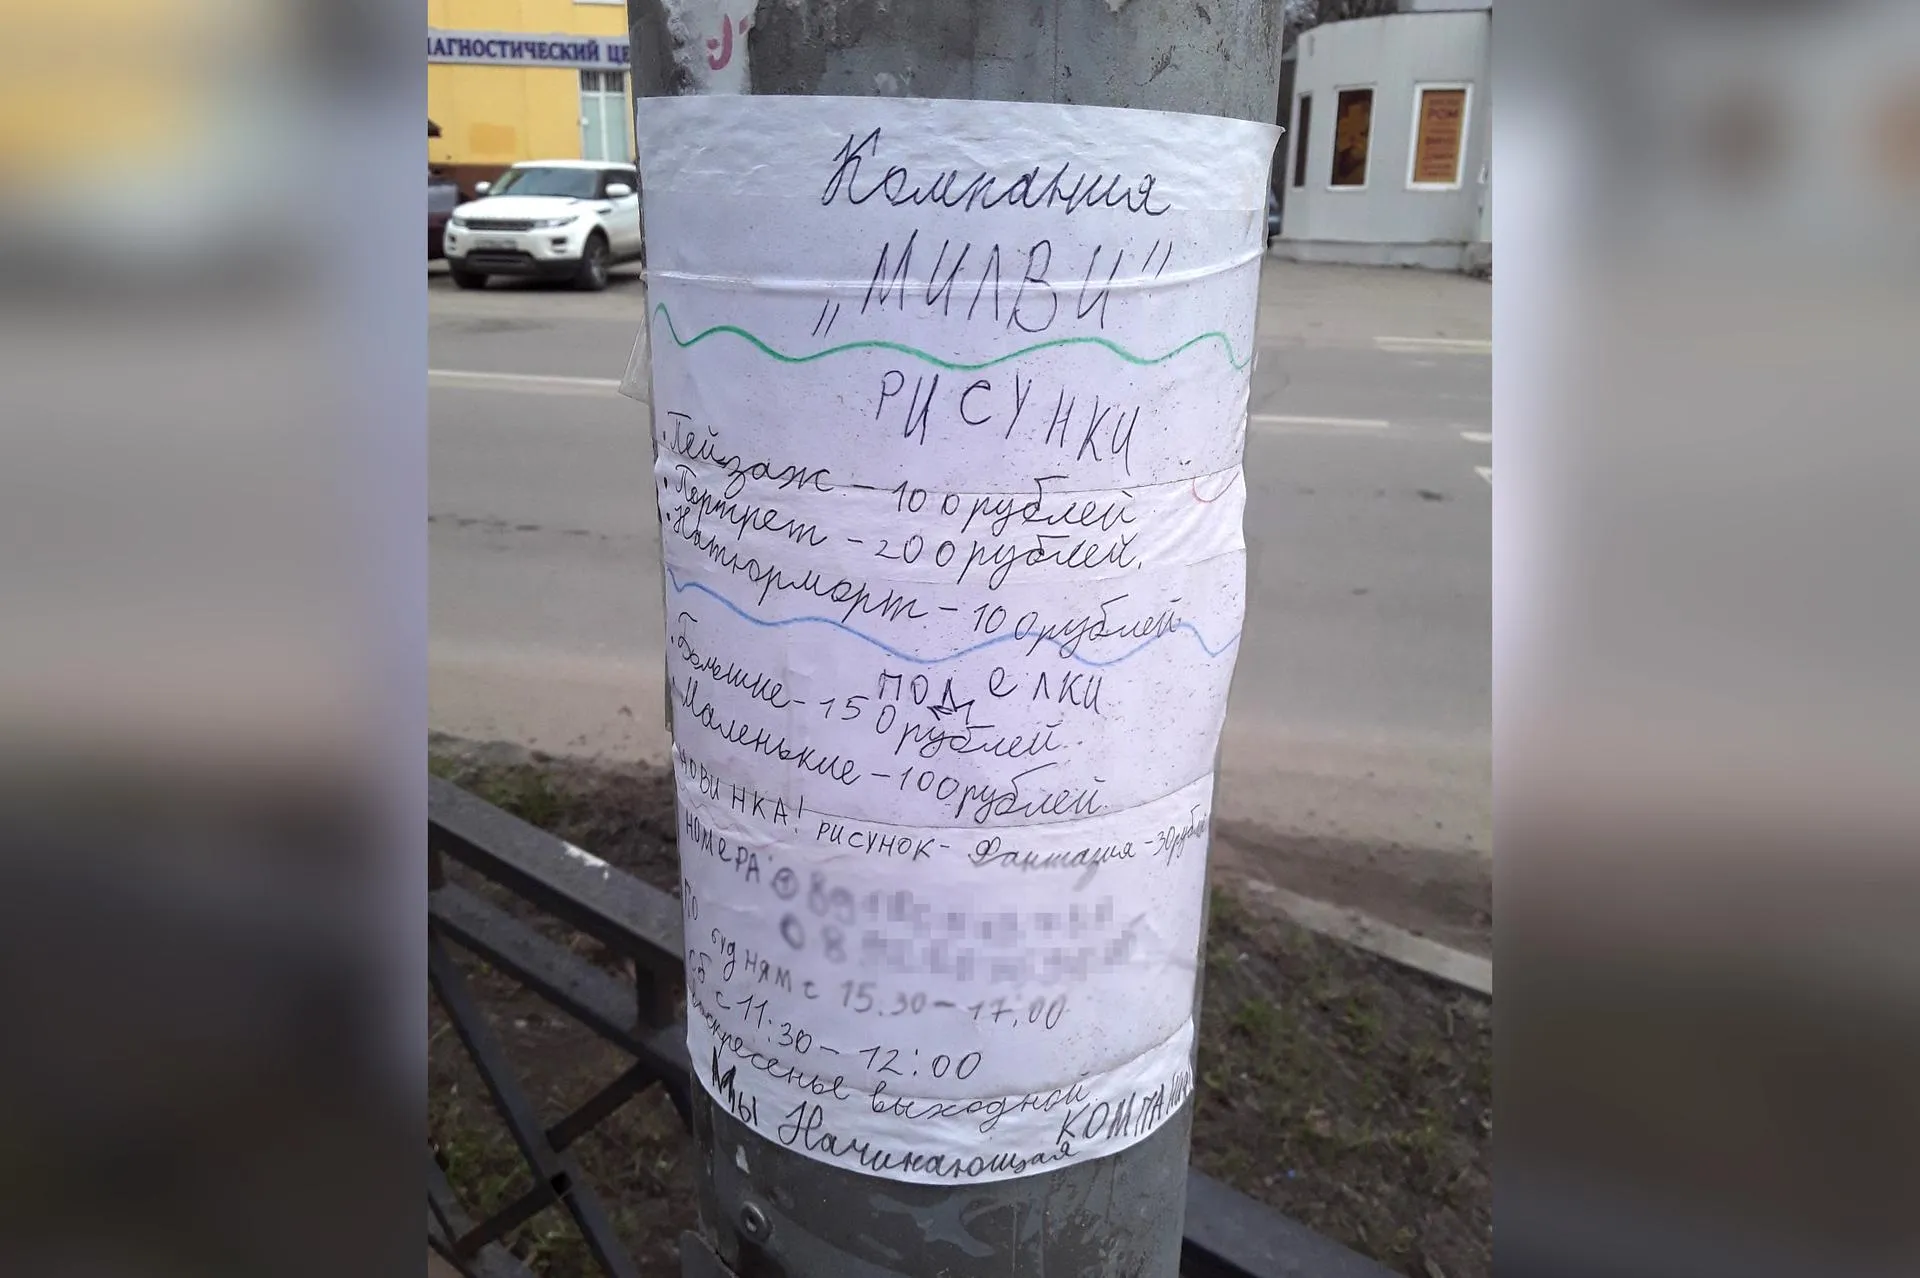 АГНОСТИЧЕСКИЙ ЦЕ
РОМ
Компания
„МИЛВИ"
РИСУНКИ
• Пейзаж - 100 рублей
• Портрет - 200 рублей.
• Натюрморт - 100 рублей
ПОДеЛКИ
• Большие - 150 рублей
• Маленькие - 100 рублей
НОВИНКА! РИСУНОК - Фантазия - 30 рублей
НОМеРА:
ПО
будням с 15.30 - 17:00
сб с 11.30 - 12:00
воскресенье выходной
Мы Начинающая КОМПАНИЯ